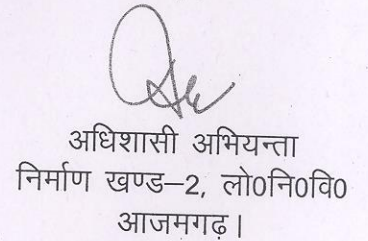 अधिशासी अभियन्ता
निर्माण खण्ड–2, लो0नि0वि0
आजमगढ़।